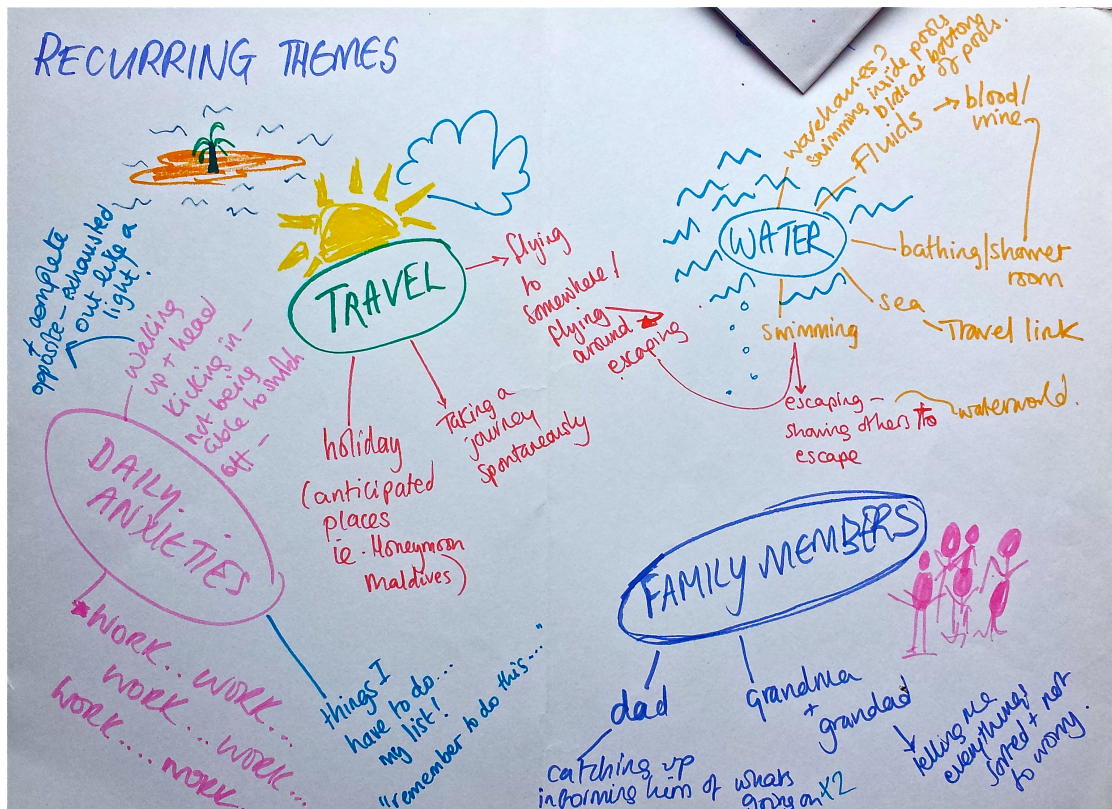 RECURRING THEMES
TRAVEL
flying
to
somewhere/
flying
around
escaping
holiday
(anticipated
places
ie. Honeymoon
Maldives)
Taking a
journey
spontaneously
WATER
warehouses?
swimming inside pools
birds at bottom
of pools.
Fluids
blood/
urine
bathing/shower
room
sea
Travel link
swimming
escaping -
shoving others to
escape
waterworld.
DAILY
ANXIETIES
waking
up + head
kicking in -
not being
able to switch
off -
+ complete
opposite - exhausted
out like a
light!
WORK.. WORK...
WORK... WORK...
WORK.... WORK..
things I
have to do...
my list!
"remember to do this...."
FAMILY MEMBERS
dad
catching up
informing him of whats
going on x2
grandma
+
grandad
telling me
everythings
sorted + not
to worry.